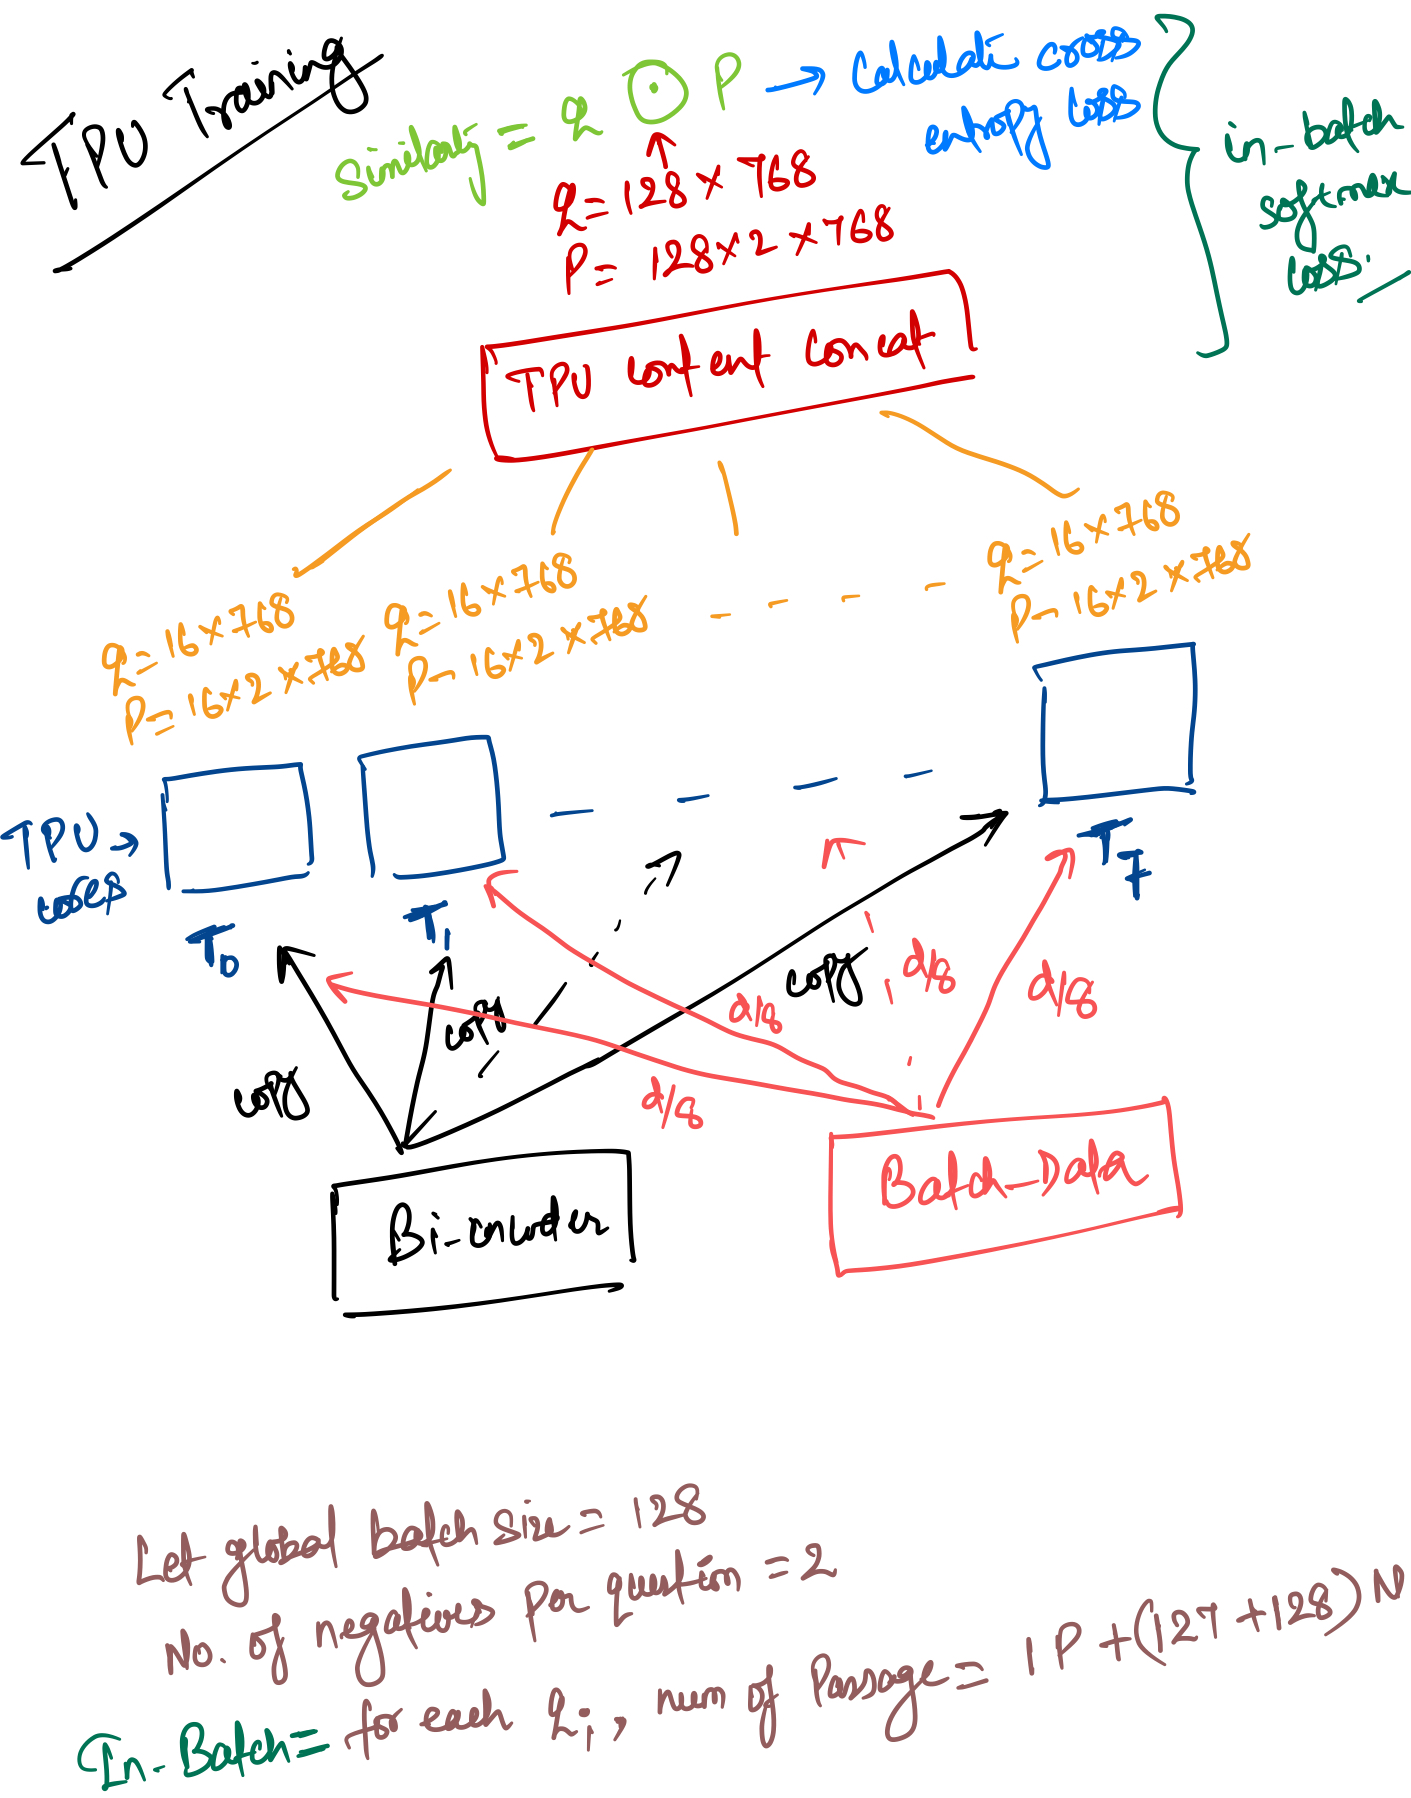 TPU Training
Similarity = q ⊙ P → Calculate cross
entropy loss
q = 128 × 768
P = 128×2×768
in-batch
softmax
loss.
TPU content concat
q = 16×768
P = 16×2×768
q = 16×768
P = 16×2×768
q = 16×768
P = 16×2×768
TPU →
cores
T0
T1
T7
copy
copy
copy
d/8
d/8
d/8
d/8
Bi-encoder
Batch_Data
Let global batch size = 128
No. of negatives per question = 2
In-Batch = for each qi, num of Passage = 1P + (127 + 128) N